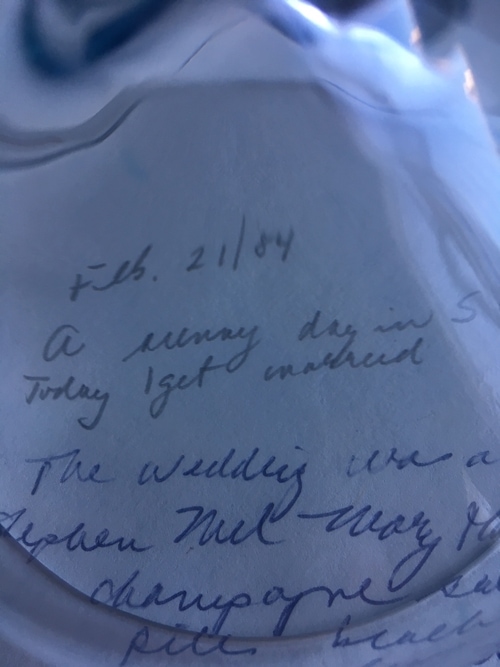 Feb. 21/84
A sunny day in S
Today I get married
The wedding was a
Stephen Mel Mary
champagne
beach